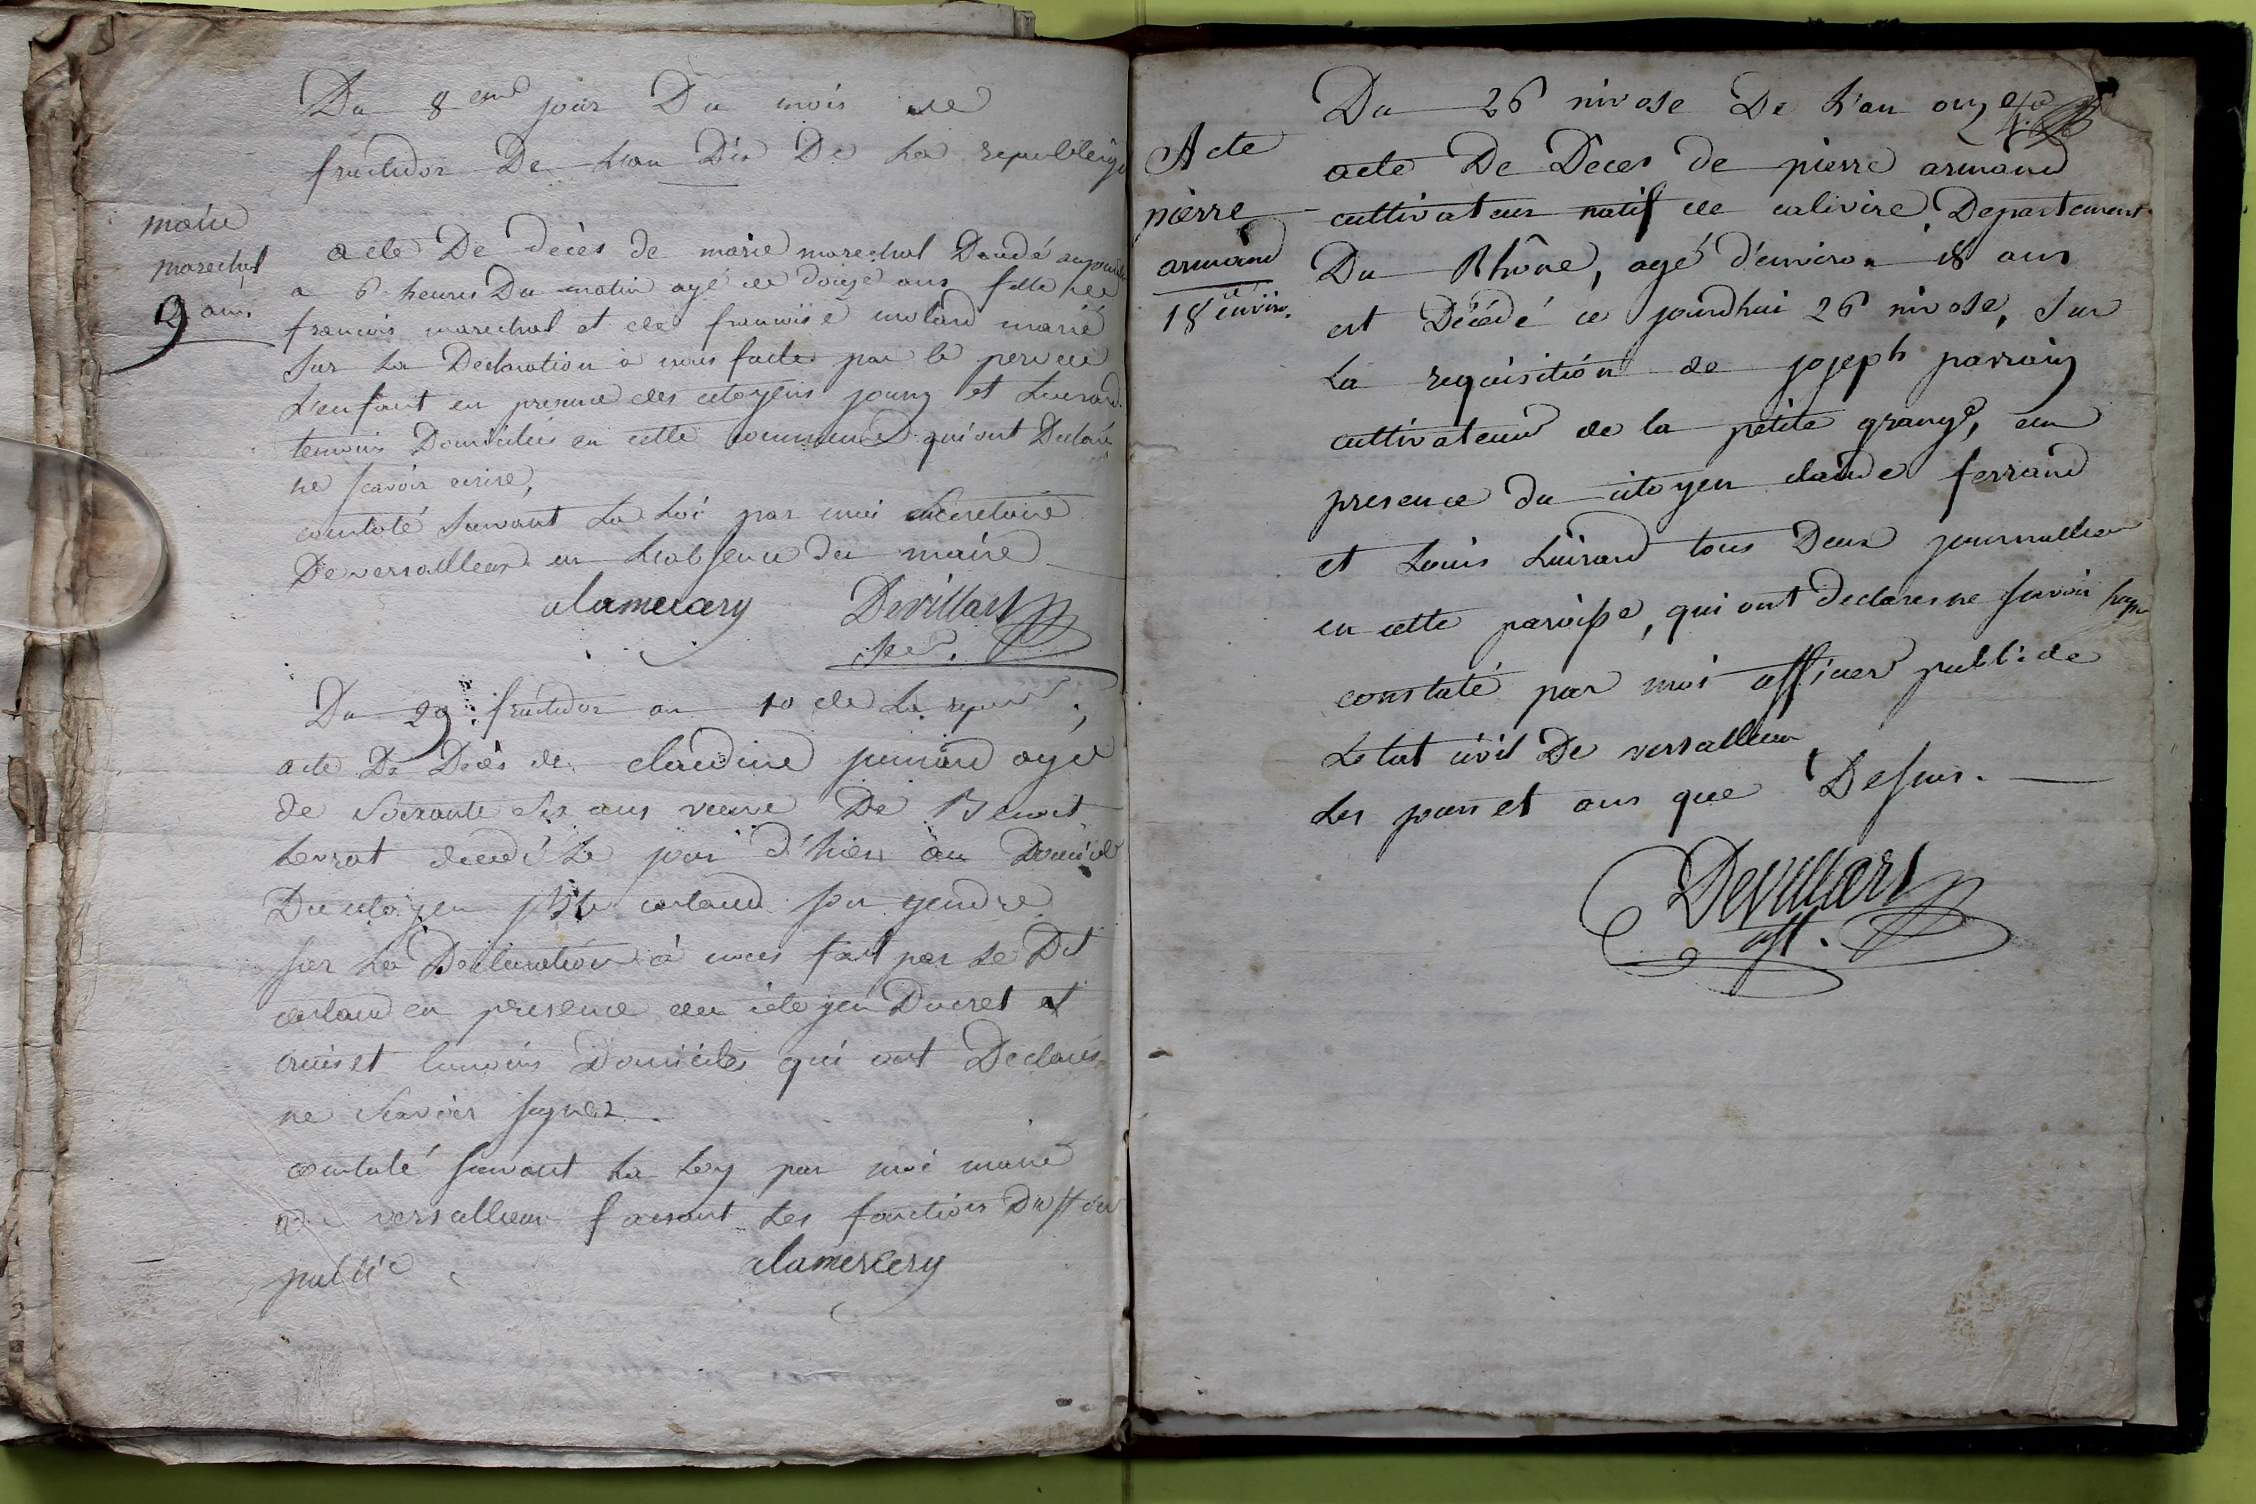 Du 8eme jour Du mois de
fructidor De L'an Dix De La republique
marie
marechal
9 ans
acte De decès de marie marechal Decedé aujourdhui
a 6 heures Du matin agé de douze ans fille de
francois marechal et de francoise molard marié
Sur La Declaration à nous faite par le pere de
L'enfant en presence des citoyens et
temoins Domiciliés en cette commune qui ont Declaré
ne scavoir ecrire,
constaté suivant La Loi par moi secretaire
De versailleux en L'absence du maire
alamercery Devillars
sec.
Du 29 fructidor an 10 de La repu
acte De Decès de claudine agé
de soixante six ans veuve De Benoit
Levrat decedé Le jour d'hier au Domicile
Du citoyen carland son gendre
sur La Declaration à nous fait par Le Dit
carland en presence du citoyen Ducret et
cruiset temoins Domiciliés qui ont Declarés
ne scavoir signer.
constaté suivant La Loy par moi maire
De versailleux faisant Les fonctions D'officier
public alamercery
4e
Du 26 nivose De L'an onze
Acte
pierre
armand
18 environ.
acte De Dèces de pierre armand
cultivateur natif de calivire Departement
Du Rhône, agé d'environ 18 ans
est Décédé ce jourdhui 26 nivose, Sur
La requisition de joseph parrain
cultivateur de la petite grange, en
presence du citoyen claude ferrand
et Louis Luirard tous Deux journallier
en cette paroisse, qui ont declares ne savoir signer
constaté par moi officier public de
Letat civil De versallieux
Les jours et ans que Dessus.
Devillars
off.